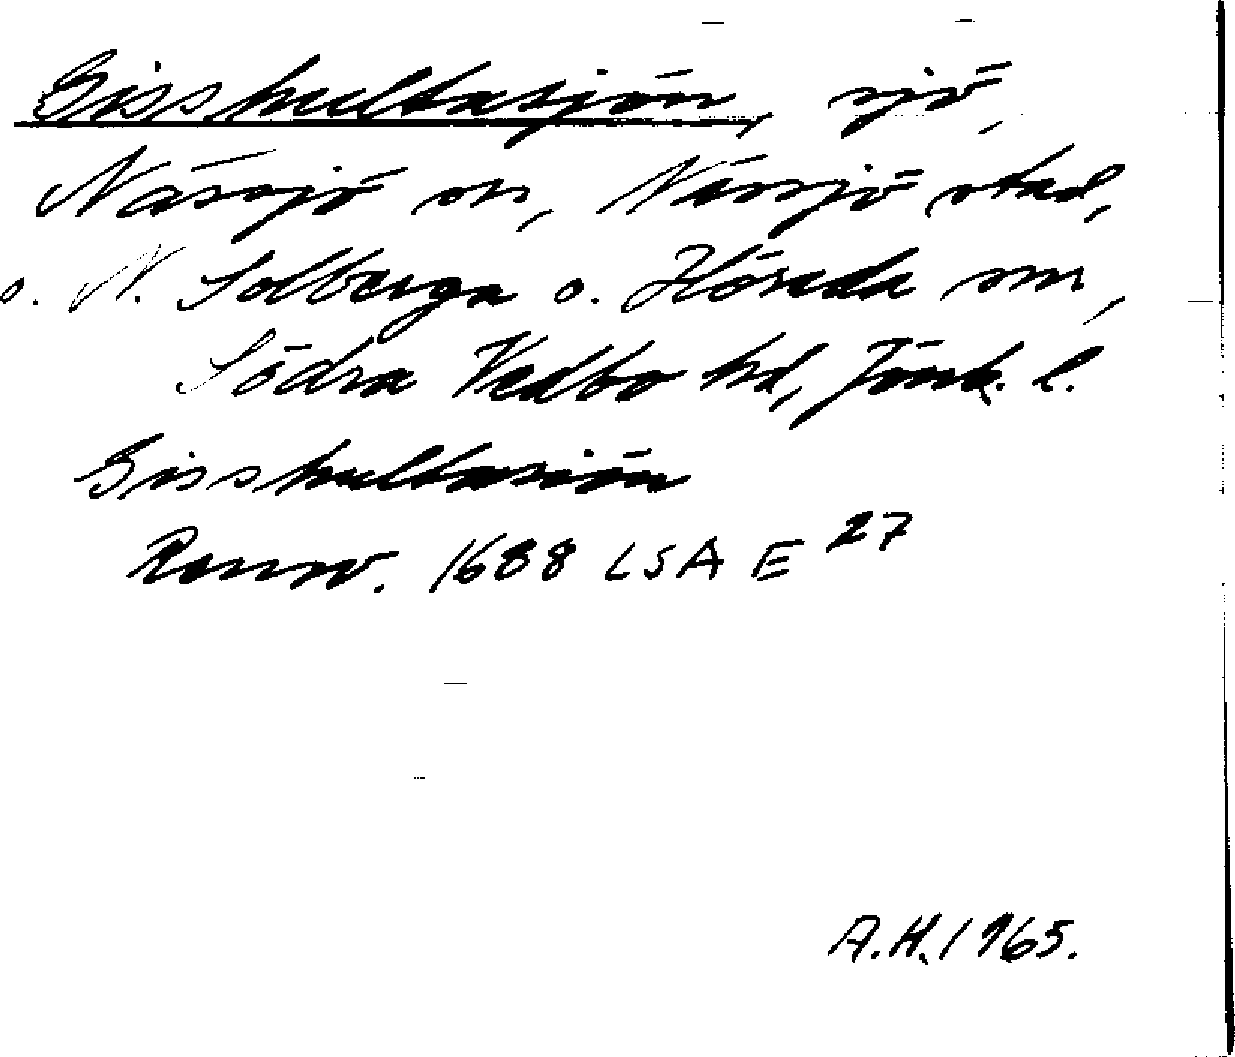 Gisshultasjön, sjö,
Nässjö sn, Nässjö stad,
o. N. Solberga o. Flisada snr,
Södra Vedbo hd, Jönk. l.
Gisshultasiön
Rannv. 1688 LSA E 27
A.H. 1965.